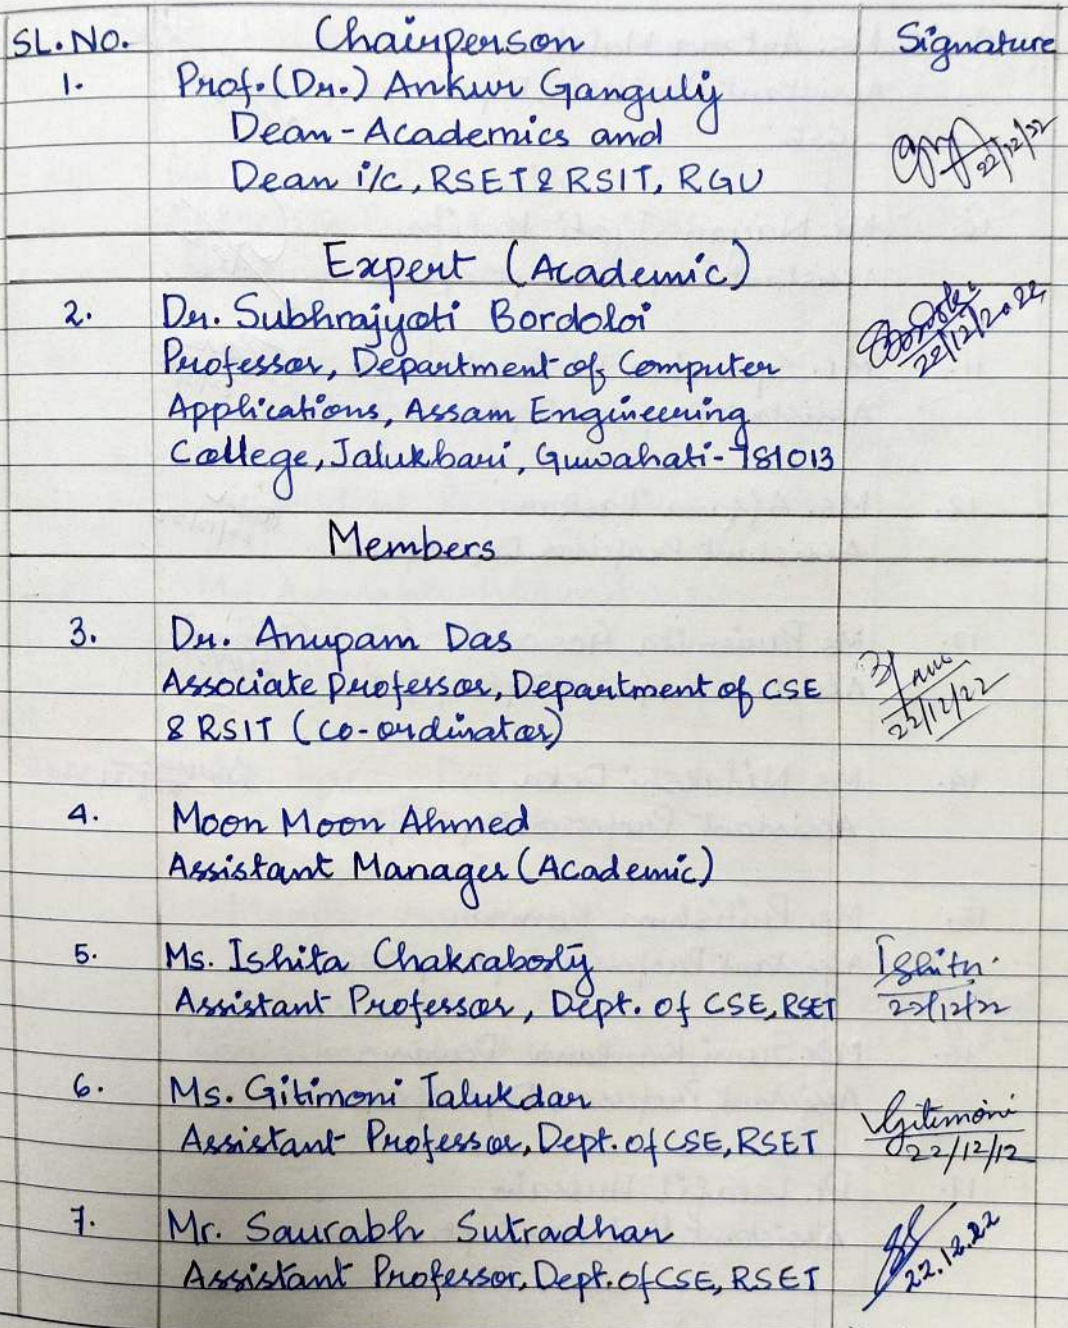 SL.NO. Chairperson Signature
1. Prof.(Dr.) Ankur Ganguly
Dean-Academics and
Dean i/c, RSET & RSIT, RGU
22/12/22
Expert (Academic)
2. Dr. Subhrajyoti Bordoloi
Professor, Department of Computer
Applications, Assam Engineering
College, Jalukbari, Guwahati-781013
22/12/2022
Members
3. Dr. Anupam Das
Associate Professor, Department of CSE
& RSIT (Co-ordinator)
22/12/22
4. Moon Moon Ahmed
Assistant Manager (Academic)
5. Ms. Ishita Chakraborty
Assistant Professor, Dept. of CSE, RSET
Ishita
22/12/22
6. Ms. Gitimoni Talukdar
Assistant Professor, Dept. of CSE, RSET
Gitimoni
22/12/12
7. Mr. Saurabh Sutradhar
Assistant Professor, Dept. of CSE, RSET
22.12.22